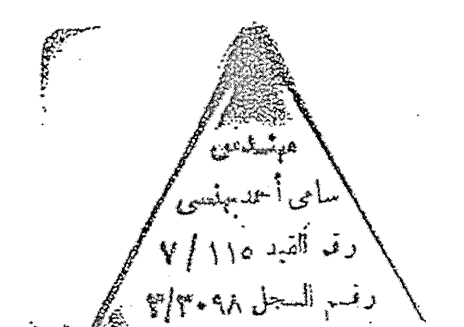 مهندس
سامى أحمد بهنسى
رقم القيد ١١٥ / ٧
رقم السجل ٣٠٩٨/٣